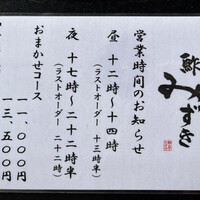 鮨 みずき
営業時間のお知らせ
昼 十二時〜十四時
(ラストオーダー 十三時半)
夜 十七時〜二十二時半
(ラストオーダー 二十二時)
おまかせコース
一一、〇〇〇円
一三、五〇〇円